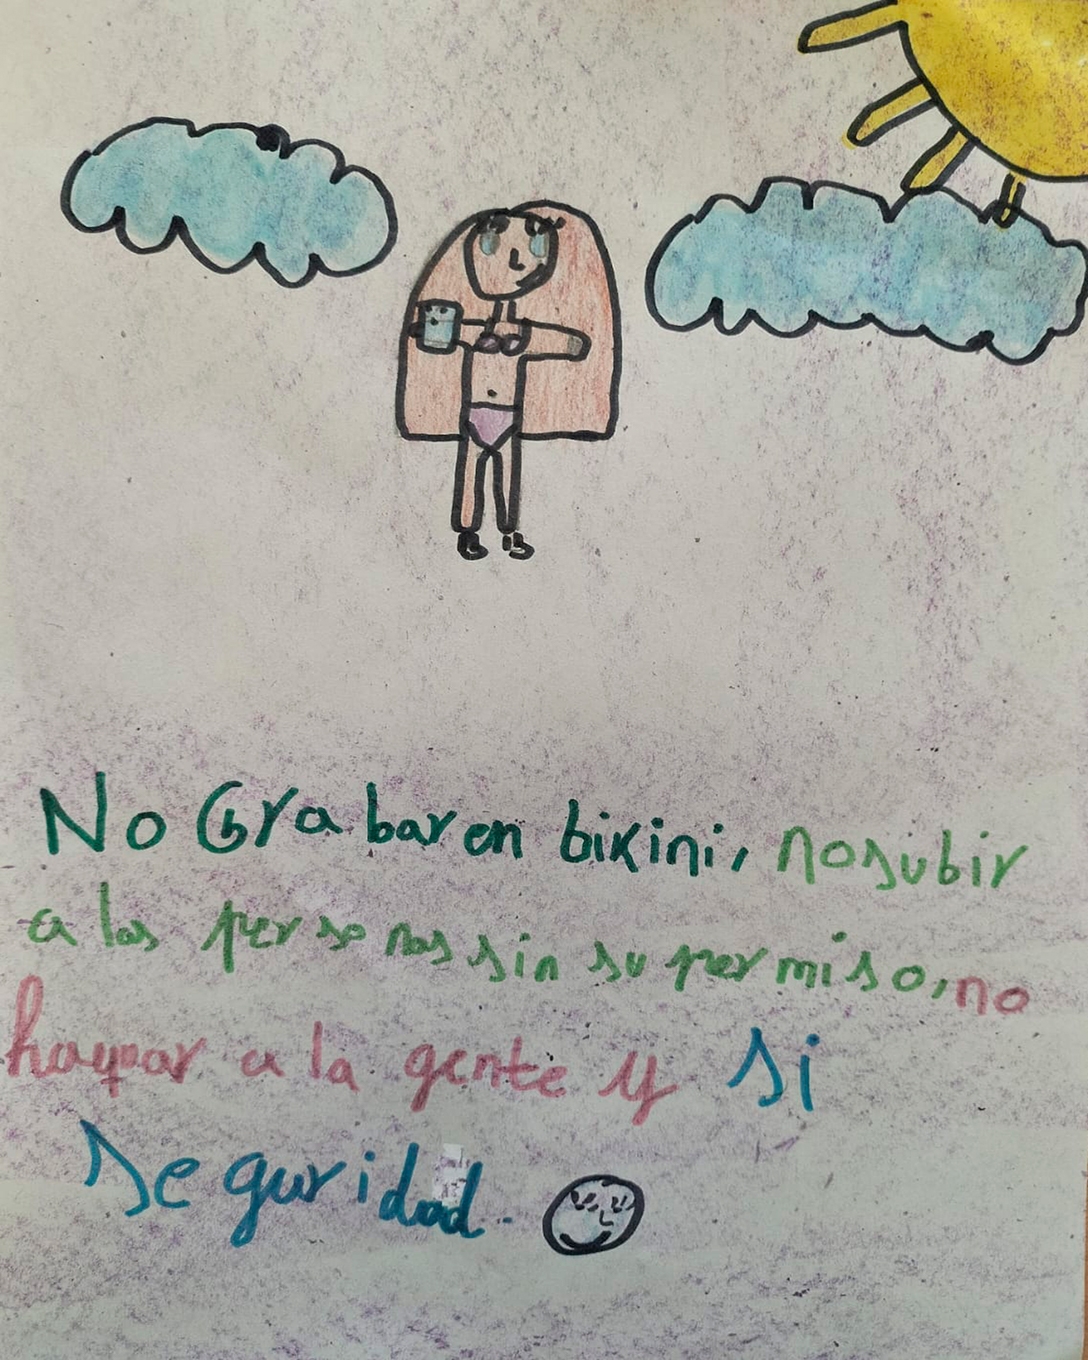 No Grabar en bikini, no subir
a las personas sin su permiso, no
haquar a la gente y si
seguridad.